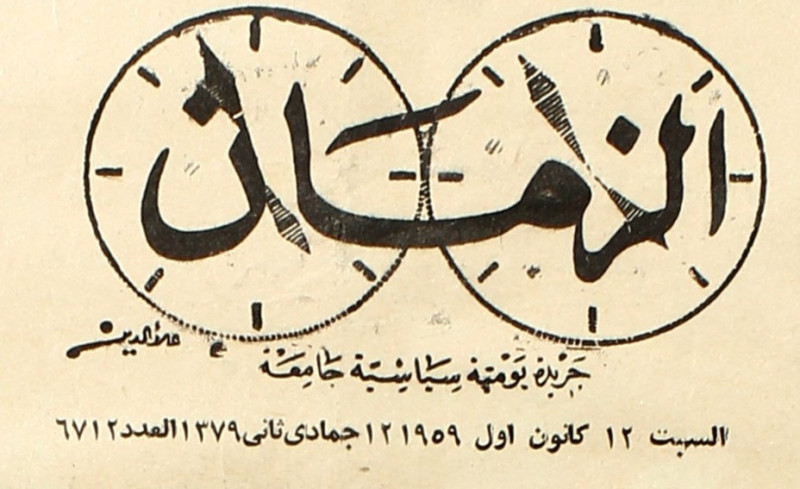 الزمان
علاء الدين
جريدة يومية سياسية جامعة
السبت ١٢ كانون اول ١٩٥٩ ١٢ جمادى ثانى ١٣٧٩ العدد ٦٧١٢